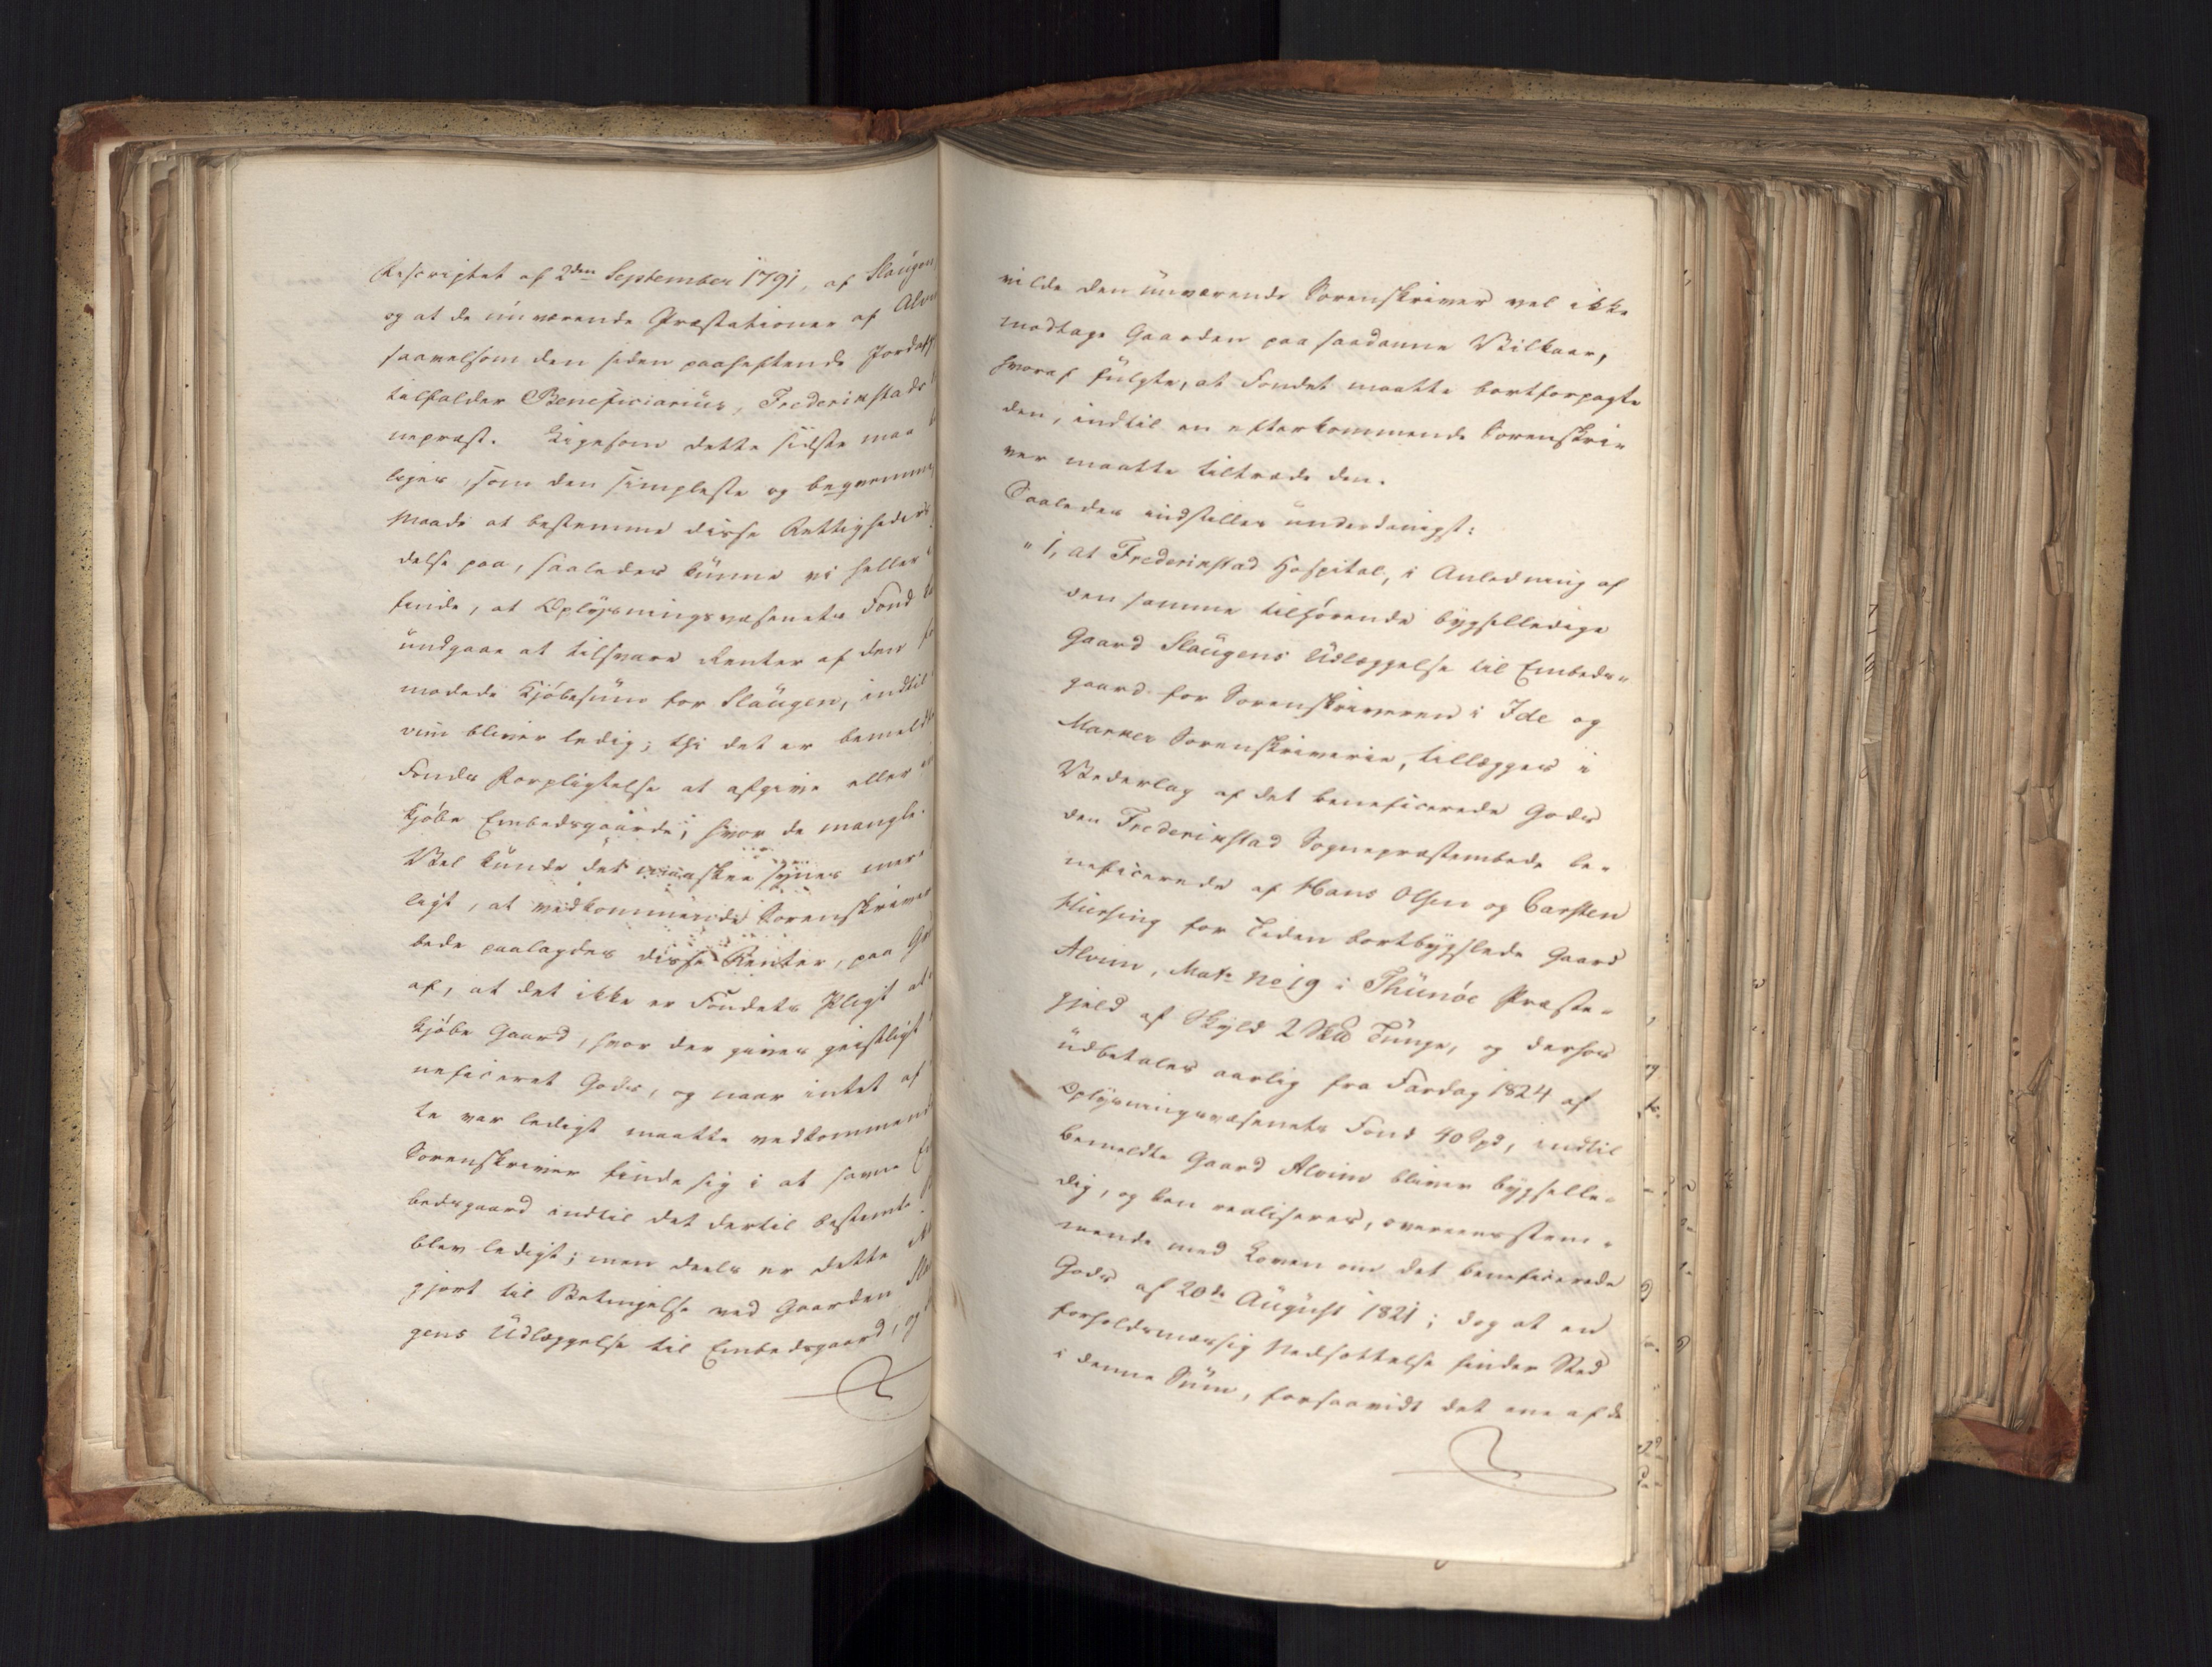 Rescriptet af 2den September 1791, af Slaügen
og at de nu værende Præstationer af Alvi
saavelsom den siden paaheftende Jordafg
tilfalder Beneficiarius, Frederikstads
nepræst. Ligesom dette sidste maa
ligner, som den simpleste og beqvemme
Maade at bestemme disse Rettigheders
delse paa, saaledes kunne vi heller
finde, at Oplysningsvæsenets Fond
undgaae at tilsvare Renter af den
modede Kjöbesum for Slaügen, indtil
vim bliver ledig; thi det er bemeldte
Fonds Forpligtelse at afgive eller
kjöbe Embedsgaarde, hvor de mangle.
Vel kunde det maaskee synes mere
ligt, at vedkommende Sorenskriver
bede paalagdes disse Renter, paa Gr
af, at det ikke er Fondets Pligt at
kjöbe Gaard, hvor der gives geistligt
neficeret Gods, og naar intet af
te var ledigt maatte vedkommende
Sorenskriver finde sig i at savne
bedsgaard indtil det dertil bestemte
blev ledigt; men deels er dette
gjort til Betingelse ved Gaarden Sla
gens Udlæggelse til Embedsgaard, og
vilde den nuværende Sorenskriver vel ikke
modtage Gaarden paa saadanne Vilkaar,
hvoraf fulgte, at Fondet maatte bortforpagte
den, indtil en efterkommende Sorenskri-
ver maatte tiltræde den.
Saaledes indstilles underdanigst:
" 1, at Frederikstad Hospital, i Anledning af
den samme tilhörende bygselledige
Gaard Slaugens Udlæggelse til Embeds-
gaard for Sorenskriveren i Ide og
Markers Sorenskriverie, tillægges i
Vederlag af det beneficerede Gods
den Frederikstad Sognepræstembede be-
neficerede af Hans Olsen og Carsten
Huesing for Tiden bortbygslede Gaard
Alvim, Mate No 19 i Thunöe Præste-
gjeld af Skyld 2 Skd Tunge, og derhos
udbetales aarlig fra Fardag 1824 af
Oplysningsvæsenets Fond 40 Spd, indtil
bemeldte Gaard Alvim bliver bygselle-
dig, og kan realiseres, overeensstem-
mende med Loven om det beneficerede
Gods af 20de August 1821; dog at en
forholdsmæssig Nedsættelse finder Sted
i denne Sum, forsaavidt det ene af de